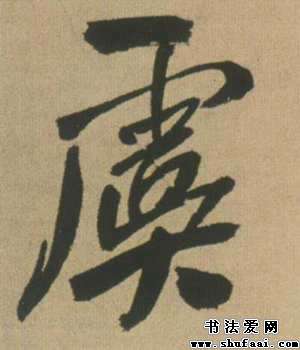 虞
书法爱网
www.shufaai.com